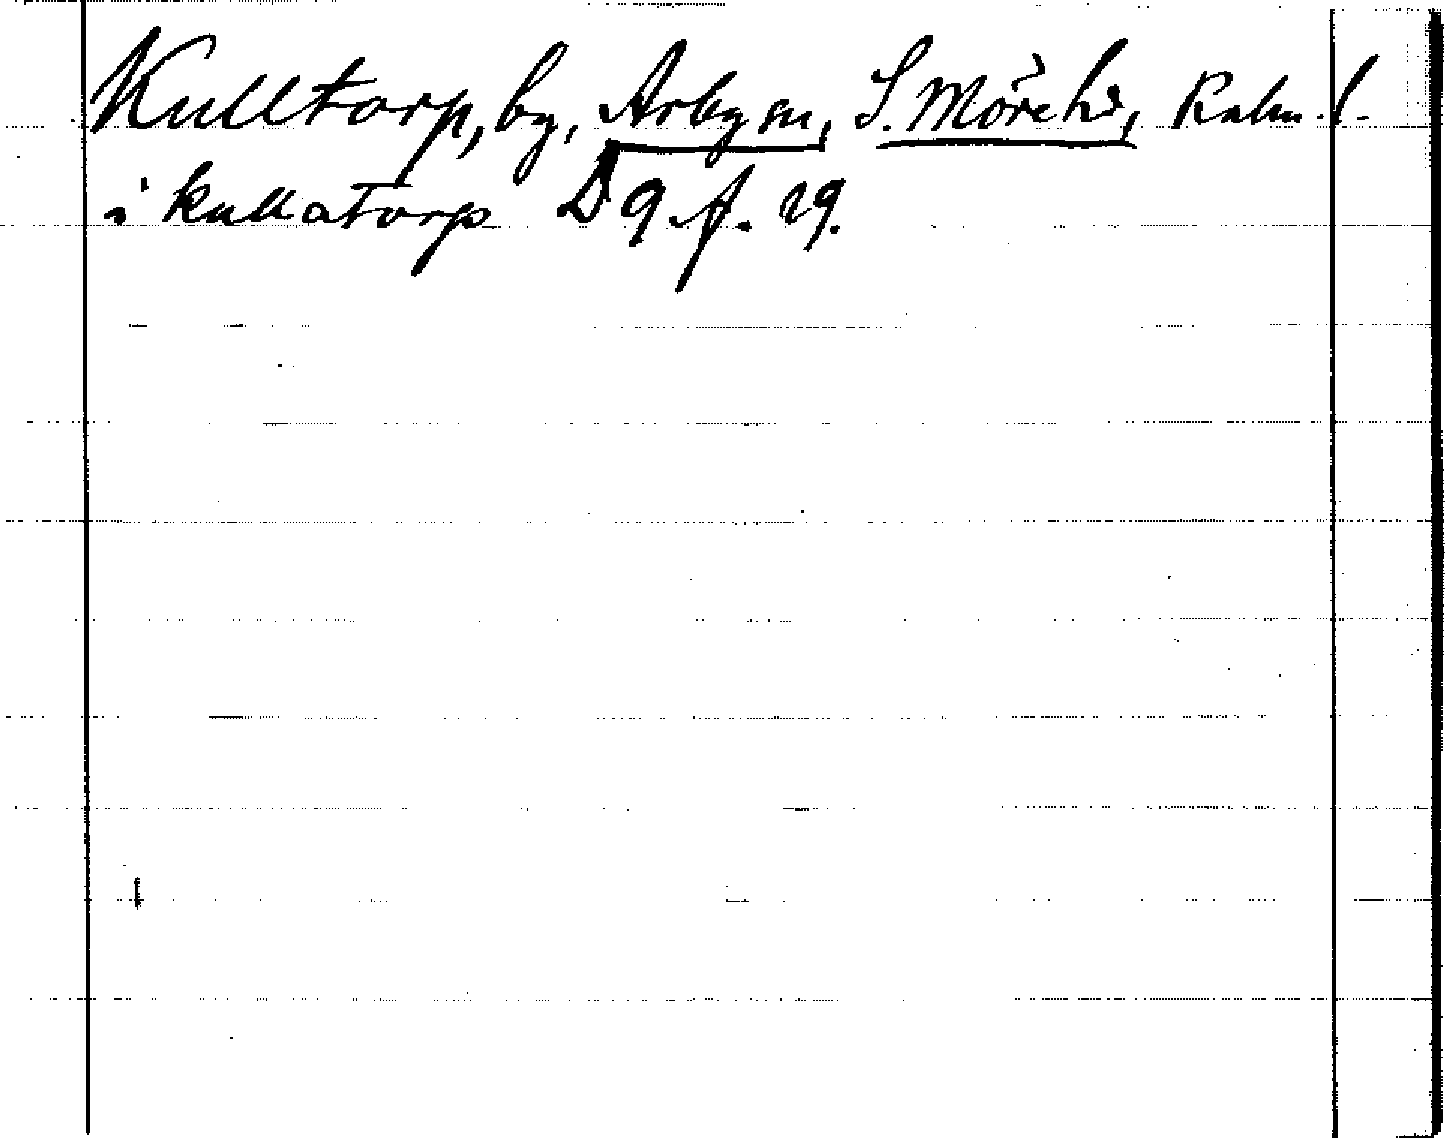 Kulltorp, by, Arby sn, S. Möre hd, Kalm. l.
i kullatorp D 9 f. 29.